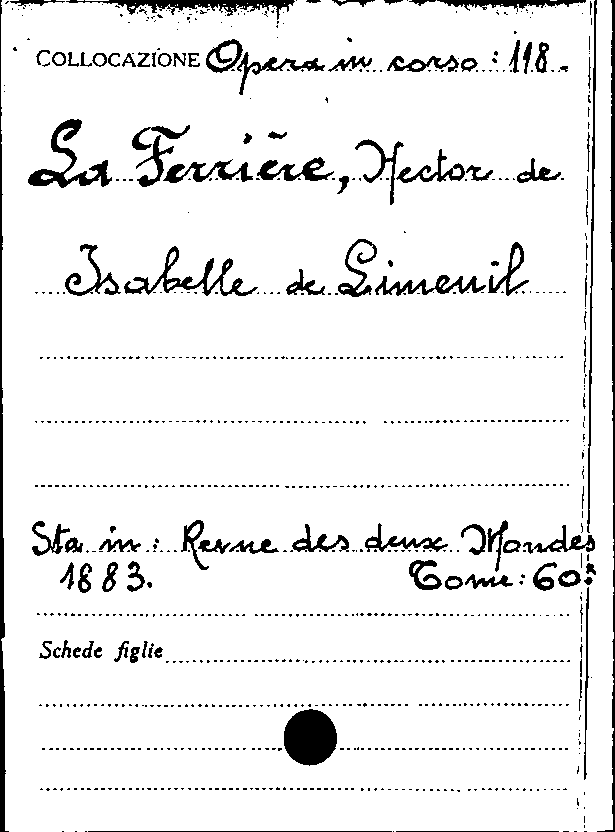 COLLOCAZIONE Opera in corso : 118.
La Ferrière, Hector de
Isabelle de Limeuil
Sta in : Revue des deux Mondes
1883. Tome : 60º
Schede figlie